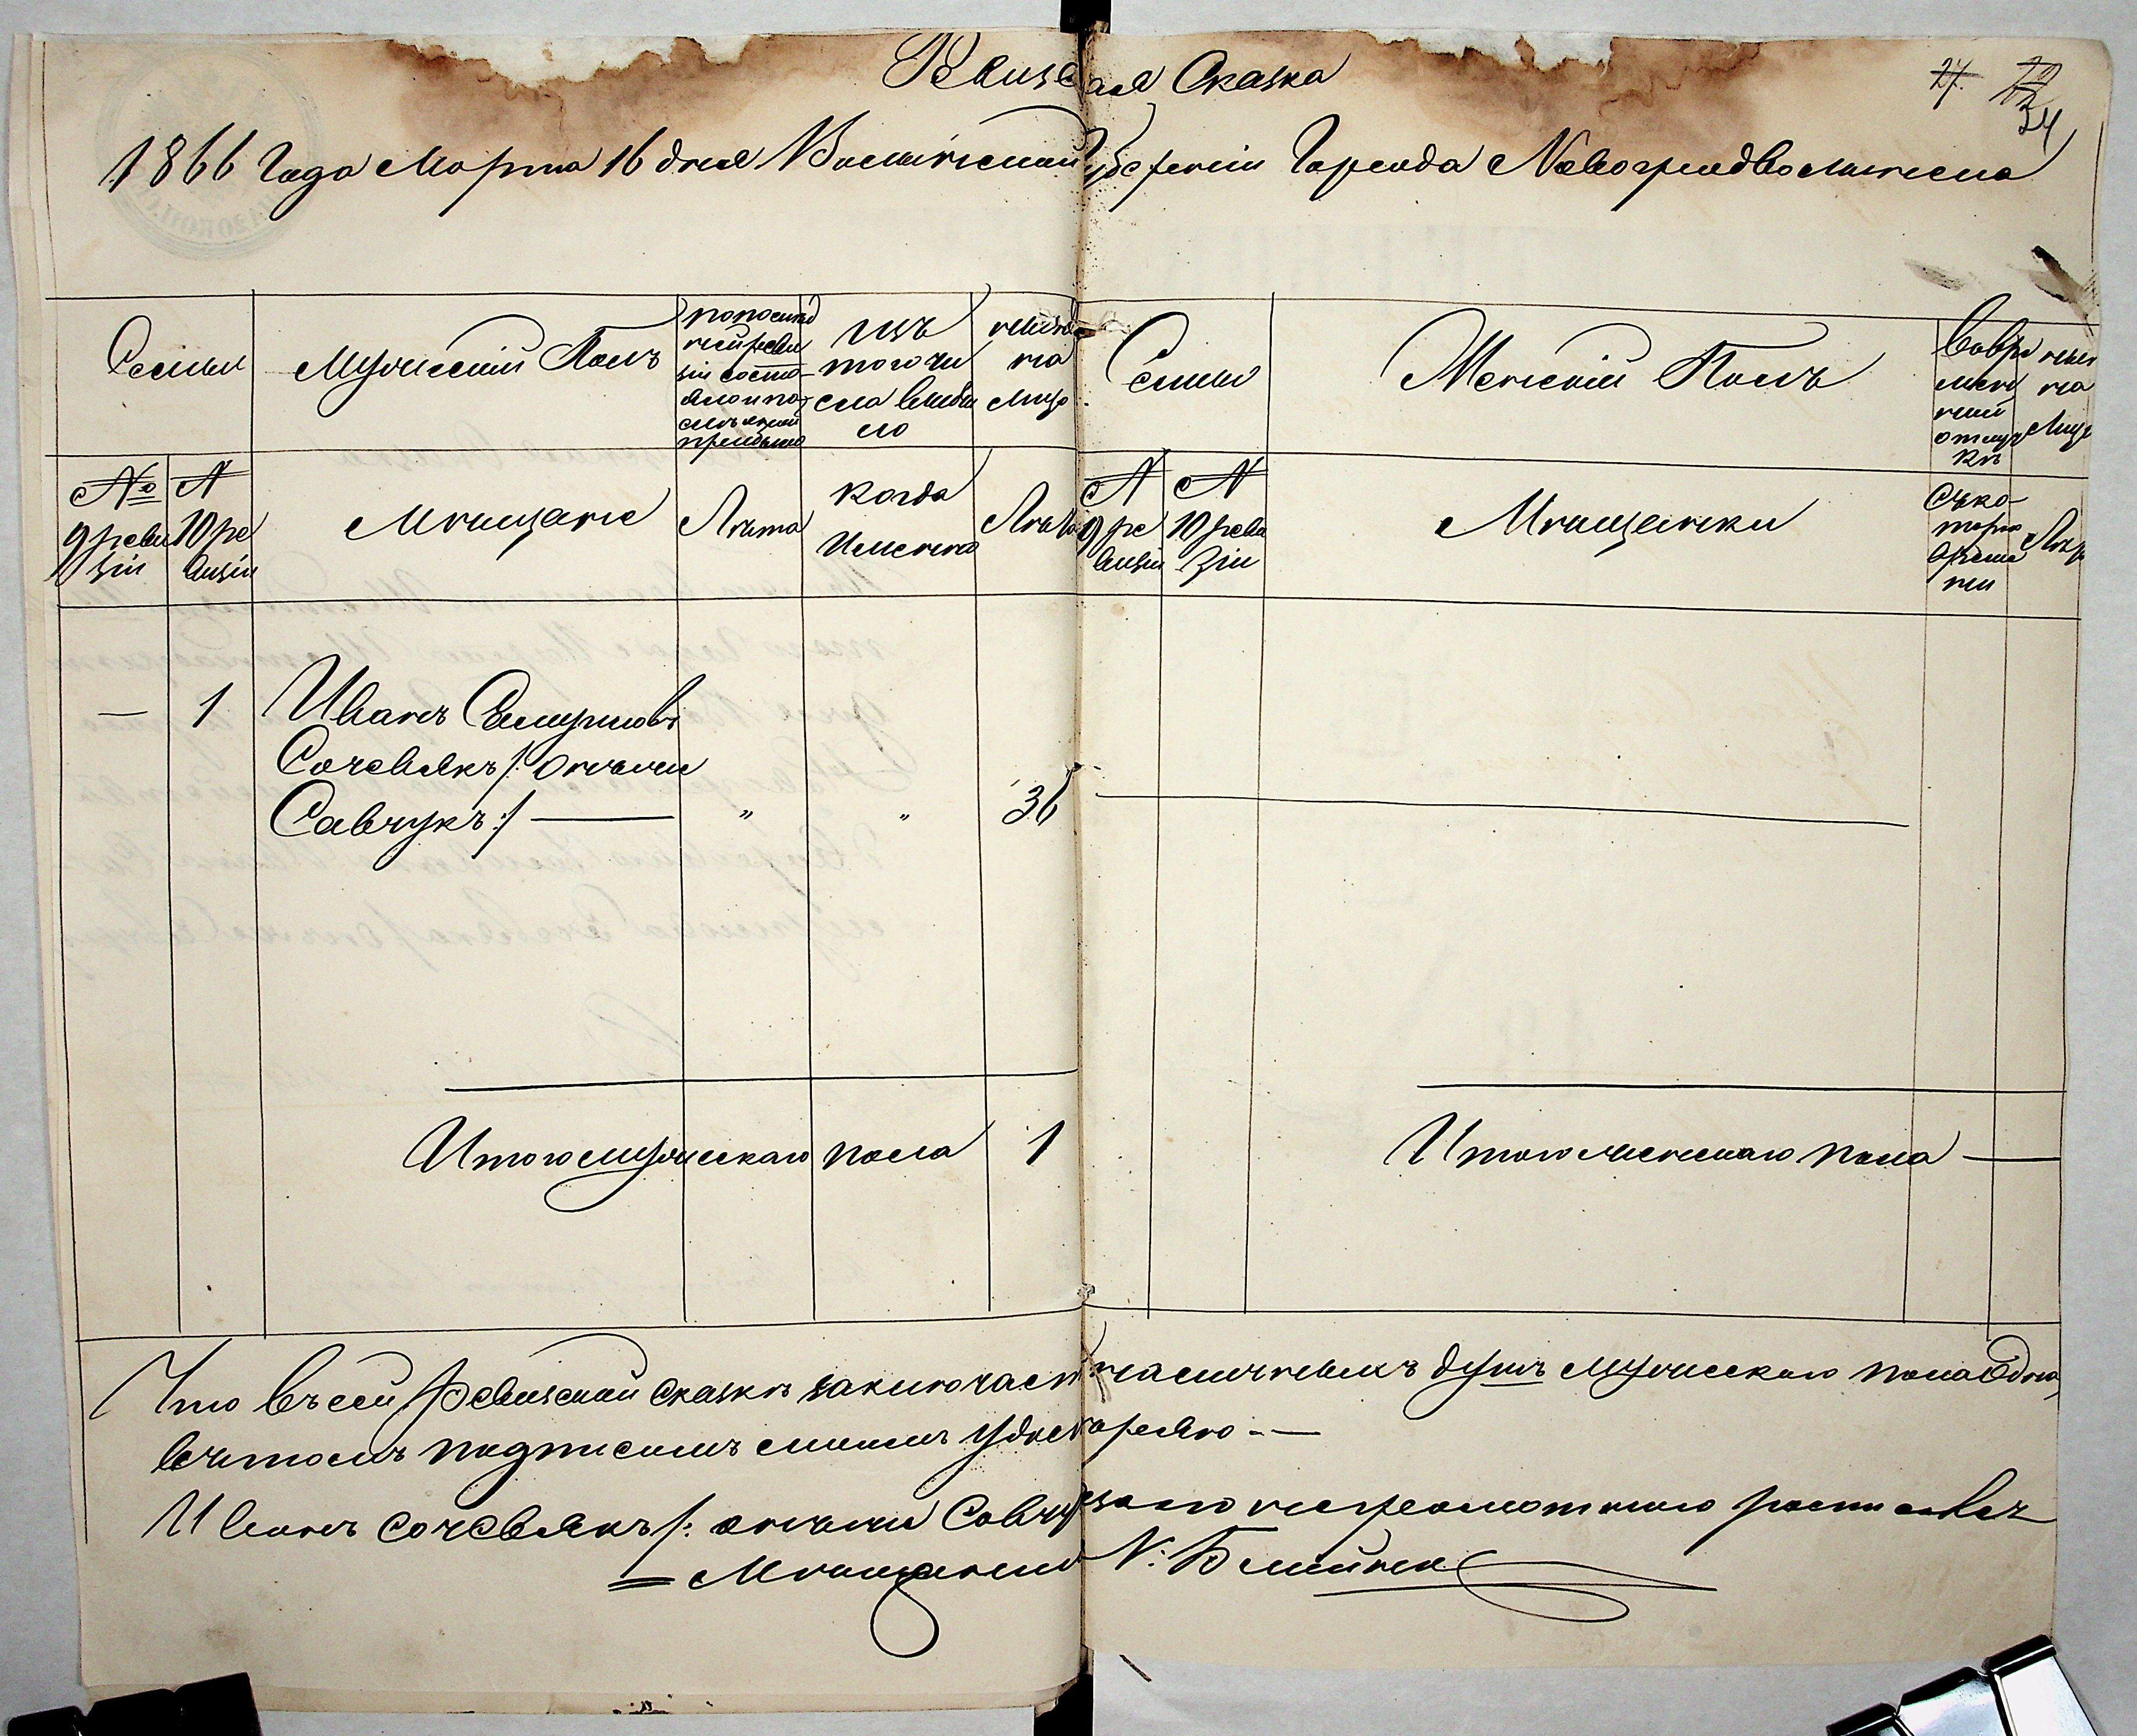 Ревизская Сказка
27. 22 24
1866 Года Марта 16 дня Волынской Губерніи Города Новоградволынска
Семьи
Мужескій Полъ
по послед
ней реви
зіи состо-
яло и по-
слѣ оной
прибыло
изъ
того чи
сла выбы
ло
нынѣ
на
лицо
Семьи
Женскій Полъ
Во вре
мен
ной
отлуч
кѣ
ныне
на
Лицо
№
9 реви
зіи
№
10 ре
визіи
Мещане
Лѣта
когда
именно
Лѣта
№
9 ре
визіи
№
10 реви
зіи
Мещанки
Съ ко-
тораго
време
ни
Лѣта
— 1 Иванъ
Сачевлякъ /: онъ же
Савчукъ :/ — „ „ 36
Итого мужескаго пола 1
Итого женскаго пола —
Что въ сей Ревизской сказкѣ заключается наличныхъ душъ мужескаго пола Одна,
въ томъ подписомъ симъ удостоверяю. —
Иванъ Сачевлякъ /: онъ же Савчук неграмотного росписався
Мещанинъ